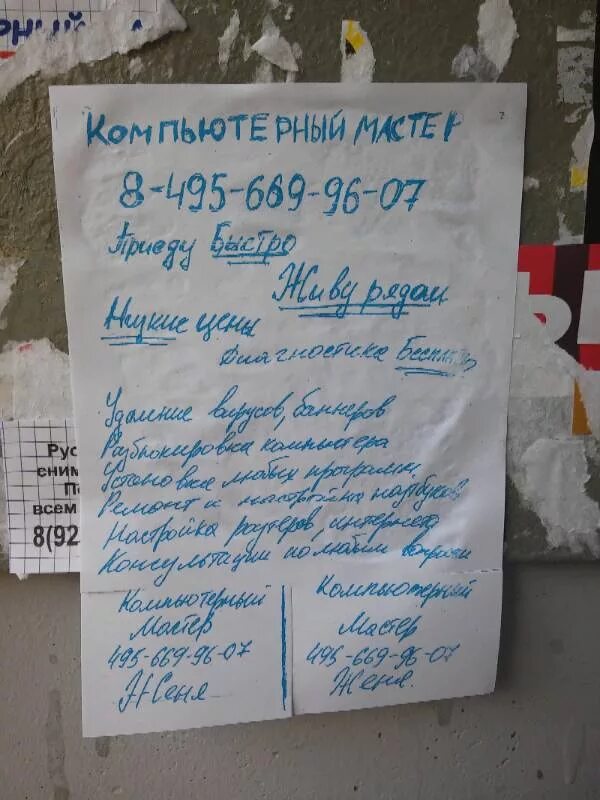 КОМПЬЮТЕРНЫЙ МАСТЕР
8-495-669-96-07
Приеду Быстро
Живу рядом
Низкие цены
Диагностика Бесплатно
Удаление вирусов, баннеров
Разблокировка компьютера
Установка любых программ
Ремонт и настройка ноутбуков
Настройка роутеров, интернета
Консультации по любым вопросам
Компьютерный
Мастер
495-669-96-07
Женя
Компьютерный
Мастер
495-669-96-07
Женя.
Рус
сним
По
всем
8(92